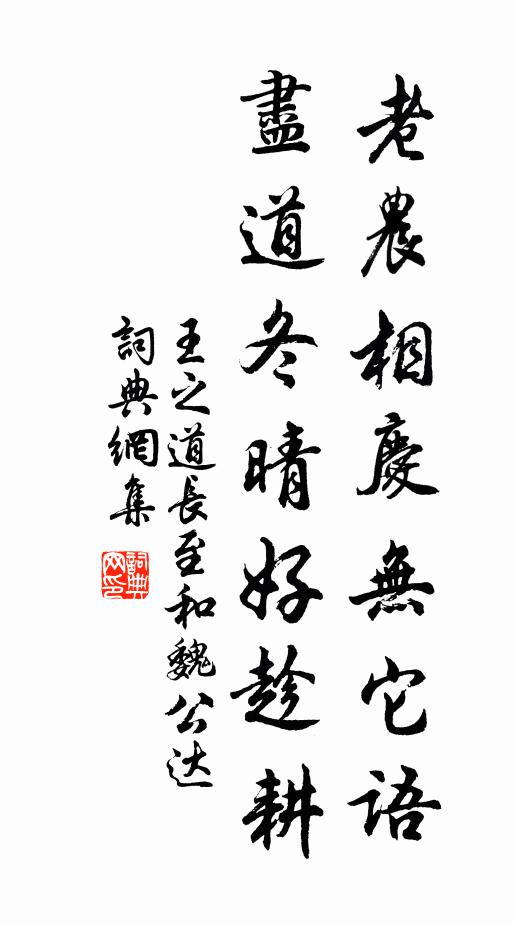 老農相慶無它語
盡道冬晴好趁耕
王之道長至和魏公达
詞典網集
詞典网印